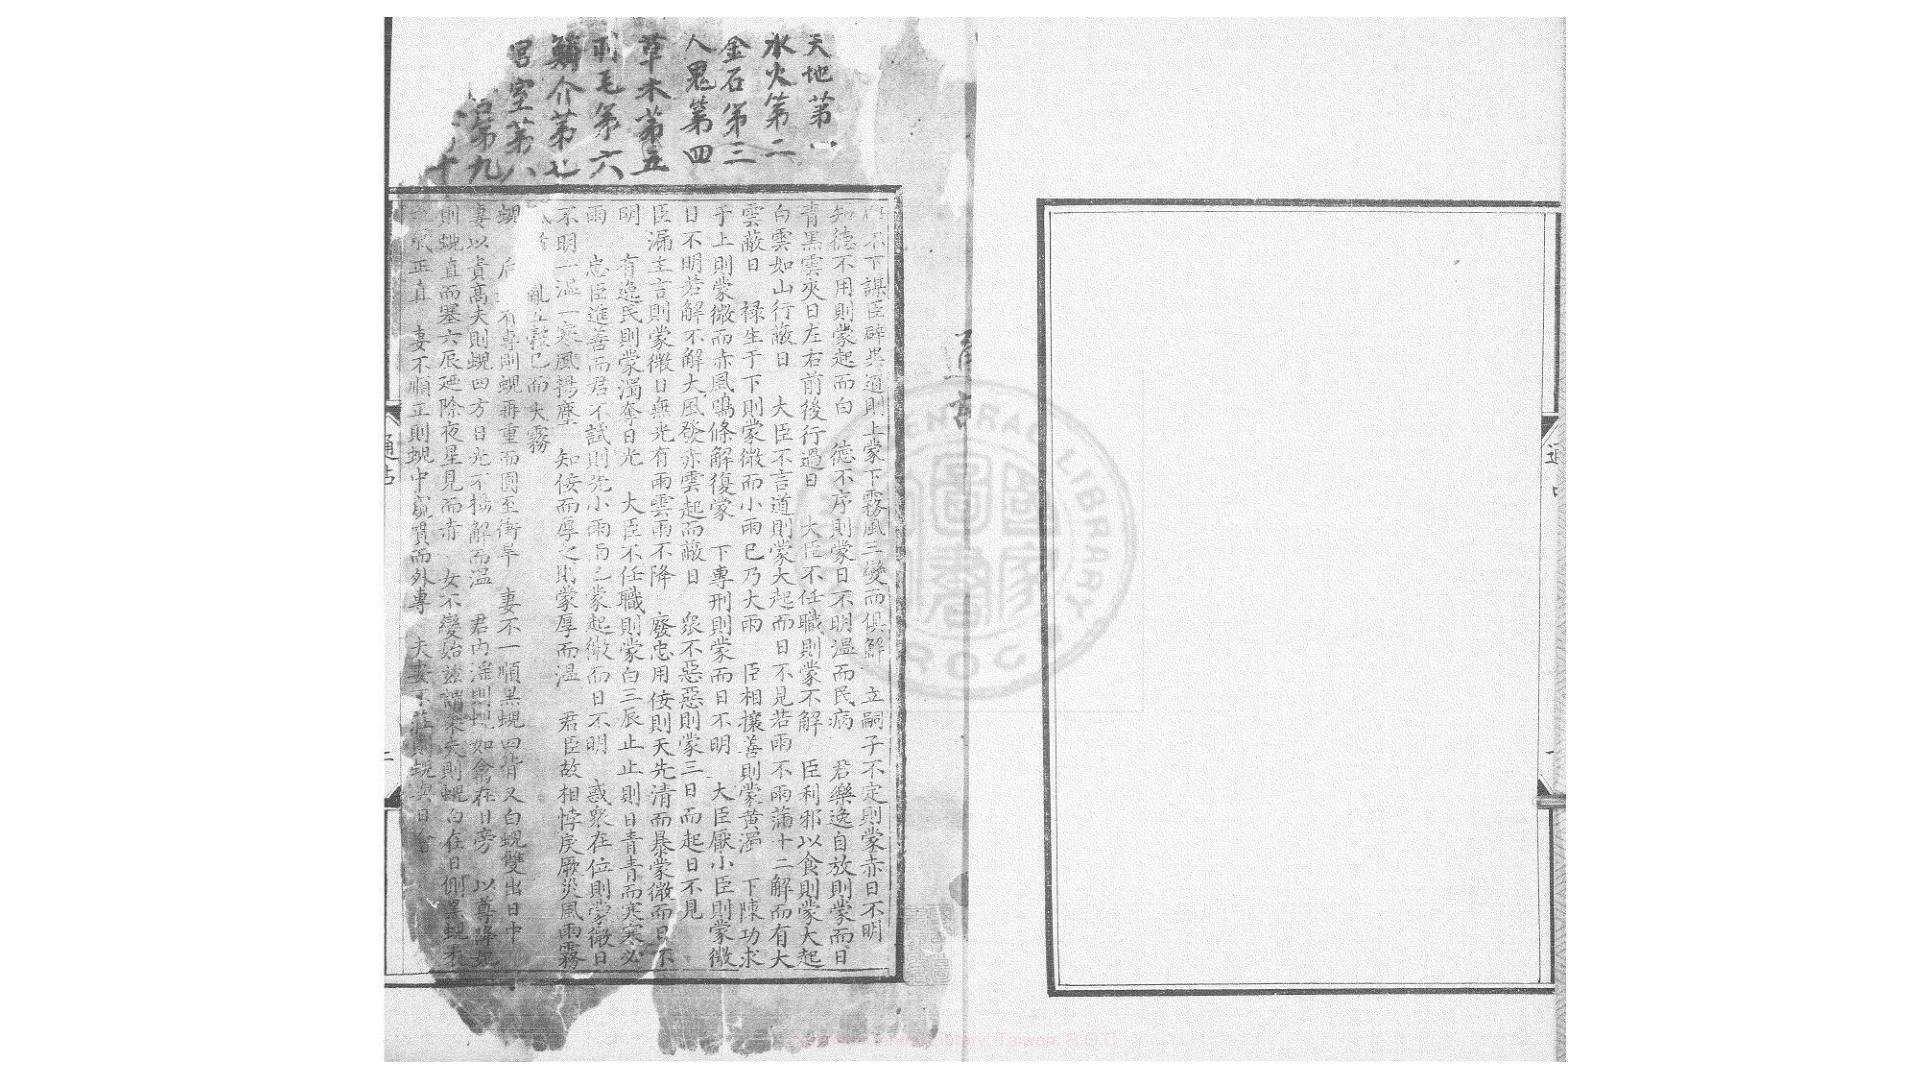 天地第一
水火第二
金石第三
人鬼第四
草木第五
羽毛第六
鱗介第七
宮室第八
第九
十
不下謀臣辟異道則上蒙下霧風三變而俱解　立嗣子不定則蒙赤日不明
知德不用則蒙起而白　德不序則蒙日不明溫而民病　君樂逸自放則蒙而日
青黑雲夾日左右前後行過日　大臣不任職則蒙不解　臣利邪以食則蒙大起
白雲如山行蔽日　大臣不言道則蒙大起而日不見若雨不雨滿十二解而有大
雲蔽日　祿生于下則蒙微而小雨已乃大雨　臣相攘善則蒙黃濁　下陳功求
于上則蒙微而赤風鳴條解復蒙　下專刑則蒙而日不明　大臣厭小臣則蒙微
日不明若解不解大風發赤雲起而蔽日　眾不惡惡則蒙三日而起日不見
臣漏主言則蒙微日無光有雨雲雨不降　廢忠用佞則天先清而暴蒙微而日不
明　有逸民則蒙濁奪日光　大臣不任職則蒙白三辰止止則日青青而寒寒必
雨　忠臣進善而君不試則先小雨而已蒙起微而日不明　惑眾在位則蒙微日
不明一溫一寒風揚塵　知佞而厚之則蒙厚而溫　君臣故相悖戾厥災風雨霧
亂五穀已而大霧
蜺　后有專則蜺再重而圓至衝旱　妻不一順黑蜺四背又白蜺雙出日中
妻以貴高夫則蜺四方日光不揚解而溫　君內淫則蜺如禽在日旁　以尊降
則蜺直而塞六辰廼除夜星見而赤　女不變始謂　夫則蜺白在日側黑蜺
氣正直　妻不順正則蜺中窺貫而外專　夫妻不莊則蜺與日會
通占
CENTRAL LIBRARY
R O C
國家圖書
Library, Taiwan, R.O.C